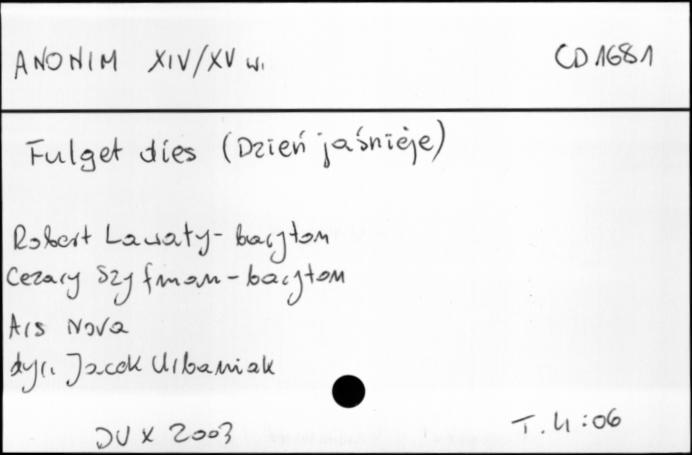 ANONIM XIV/XV w. CD 1681
Fulget dies (Dzień jaśnieje)
Robert Lawaty - baryton
Cezary Szyfman - baryton
Ars Nova
dyr. Jacek Urbaniak
DUX 2003 T. 4:06